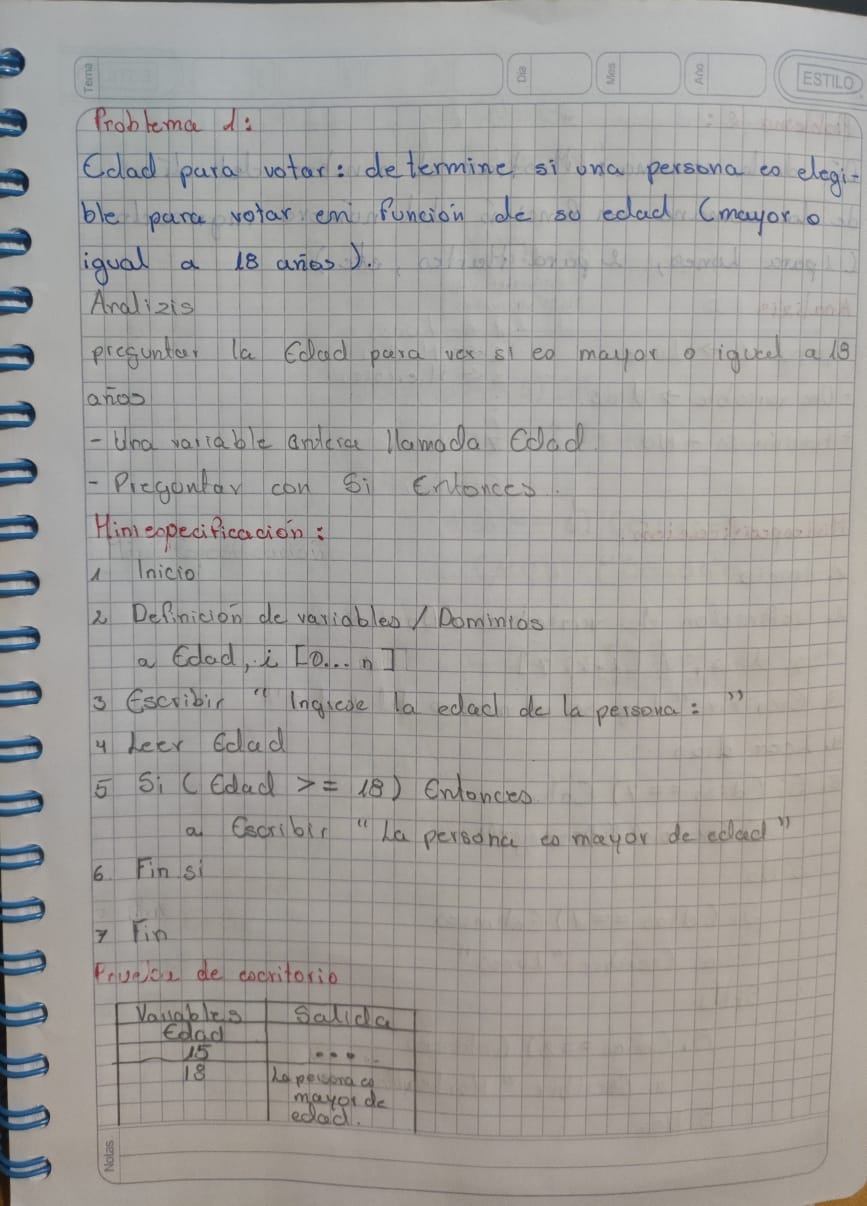 Tema
Dia
Mes
Año
ESTILO
Problema 1:
Edad para votar: determine si una persona es elegi-
ble para votar en función de su edad (mayor o
igual a 18 años).
Analizis
preguntar la Edad para ver si es mayor o igual a 18
años
- Una variable entera llamada Edad
- Preguntar con Si Entonces.
Miniespecificación:
1 Inicio
2 Definición de variables / Dominios
a Edad, i [0...n]
3 Escribir "Ingrese la edad de la persona: "
4 Leer Edad
5 Si (Edad >= 18) Entonces
a Escribir "La persona es mayor de edad"
6 Fin si
7 Fin
Prueba de escritorio
Variables Salida
Edad
15 ....
18 La persona es
mayor de
edad.
Notas